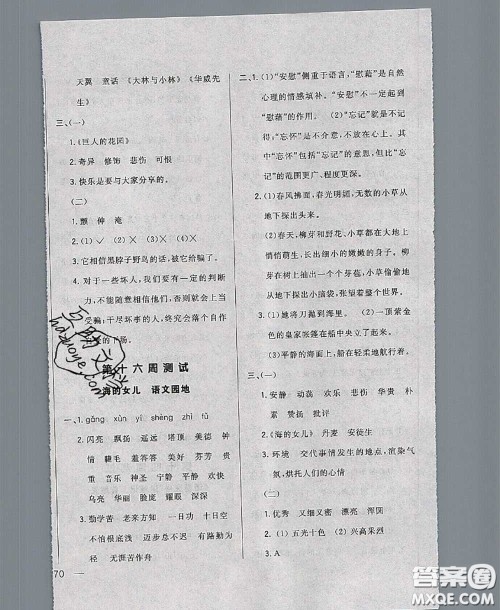 天翼 童话 《大林与小林》《华威先
生》
三、(一)
1.《巨人的花园》
2. 奇异 修饰 悲伤 可恨
3. 快乐是要与大家分享的。
(二)
1. 颤 伸 淹
2. (1)✓ (2)✕ (3)✕ (4)✕
3. 它相信黑脖子野鸟的话,被它给骗了。
4. 对于一些坏人,我们要有一定的判断
力,不能随意相信他们,否则就会上当
受骗;干尽坏事的人,终究会落个自作
的下场。
第十六周测试
海的女儿 语文园地
一、1. gāng xūn yí shèng zhì fú
2. 闪亮 飘扬 遥远 塔顶 美德 钟
情 帽毛 羞答答 美好 芬芳 贵
重 雄壮 神圣 宁静 平静 欢快
乌亮 华丽 脸庞 耀眼 深蓝
3. 勤学苦 老来方知 一日功 十日空
不怕根底浅 迈步总不迟 有路勤为
径 无涯苦作舟
70
二、1. (1)“安慰”侧重于语言,“慰藉”是自然
心理的情感填补。“安慰”不一定起到
“慰藉”的作用。 (2)“忘记”就是不记
得;“忘怀”是不介意,不放在心上。“忘
怀”包括“忘记”,“忘怀”比“忘记”
的范围更广、程度更深。
2. (1)春风拂面,春光明媚,无数的小草从
地下探出头来。
(2)春天,柳芽和野花、小草都在大地上
悄悄萌生,露出细小的嫩嫩的身子。
柳芽在树上露出一个个芽苞,小草偷偷地
从泥土里探出头。
3. (1)她将刀抛到海里。 (2)一个华丽
的皇家帐篷在船中央立了起来。
(3)平静的海面上倒映着圆圆的月亮。
三、(一)
1. 安静 动荡 欢乐 悲伤 高贵 朴
素 赞扬 批评
2.《海的女儿》 丹麦 安徒生
3. 环境 交代事情发生的地点,渲染气
氛,烘托人们的心情
(二)
1. 优秀 又细又密 漂亮 浑圆
2. (1)五光十色 (2)兴高采烈
3. A
答案圈
MXQE.COM